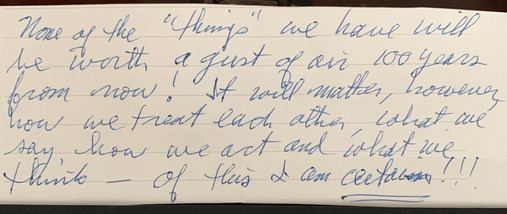 None of the "things" we have will
be worth a gust of air 100 years
from now! It will matter, however
how we treat each other, what we
say, how we act and what we
think — of this I am certain!!!